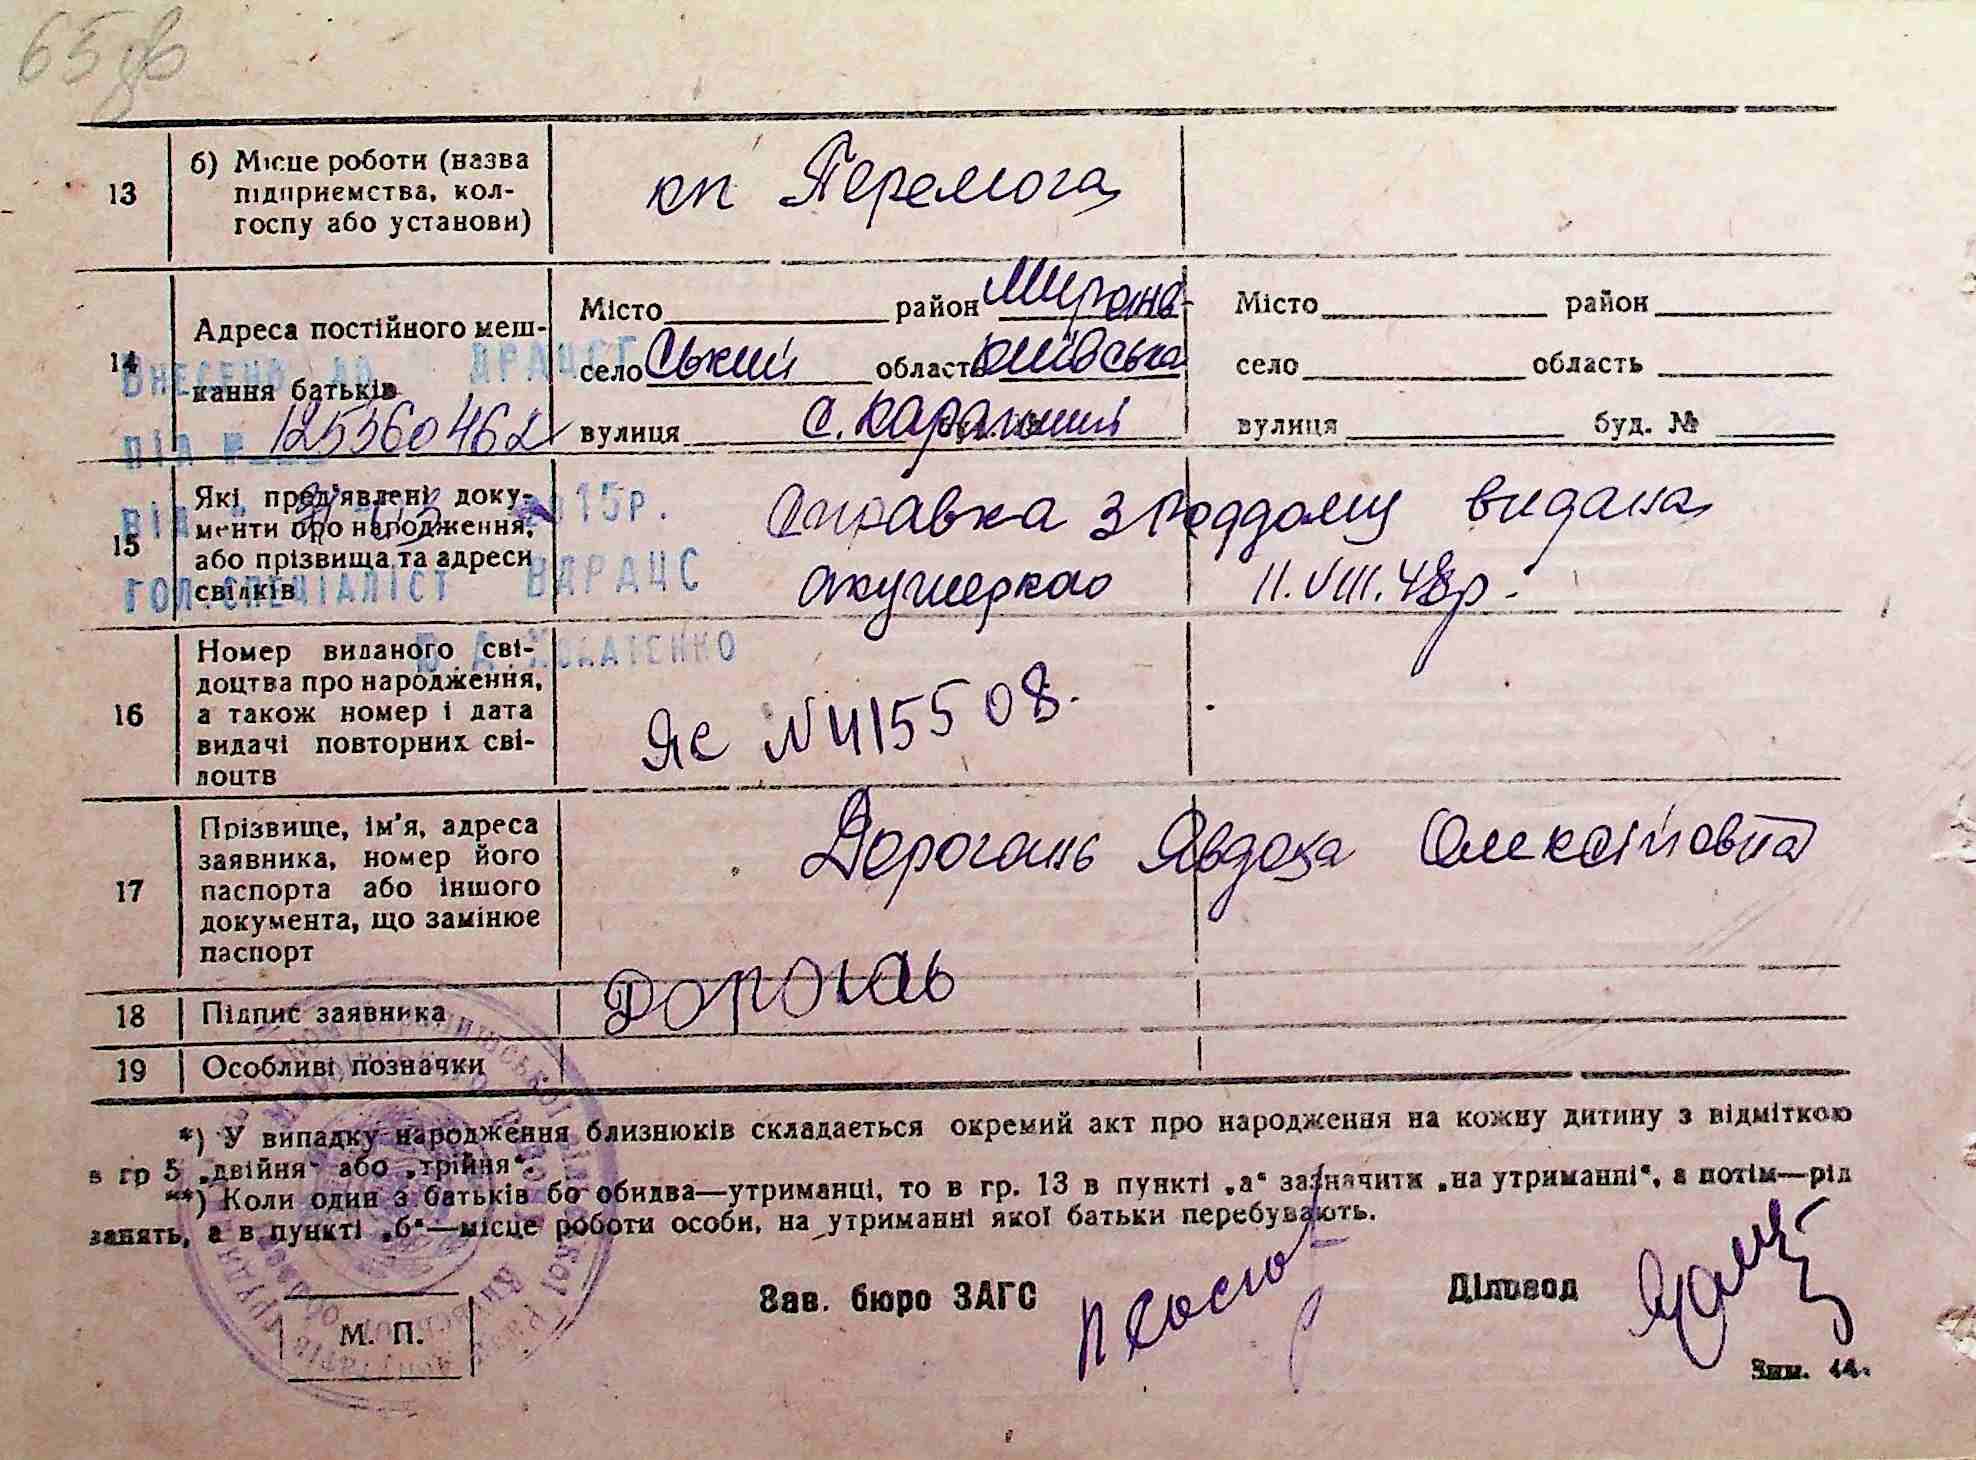 65 зв
13 б) Місце роботи (назва підприємства, колгоспу або установи) кп Перемога
14 Адреса постійного мешкання батьків
Місто район Миронів-
село ський область Київська
вулиця с. Карапиші
Місто район
село область
вулиця буд. №
ВНЕСЕНО ДО ДРАЦСГ
ПІД № 125360462
ВІД 2015р.
ГОЛ.СПЕЦІАЛІСТ ВДРАЦС
15 Які пред'явлені документи про народження, або прізвища та адреси свідків
Справка з роддому видана
акушеркою 11.VIII.48р.
16 Номер виданого свідоцтва про народження, а також номер і дата видачі повторних свідоцтв
ЯЄ № 415508.
17 Прізвище, ім'я, адреса заявника, номер його паспорта або іншого документа, що замінює паспорт
Дорогань Явдоха Олексіївна
18 Підпис заявника
19 Особливі позначки
*) У випадку народження близнюків складається окремий акт про народження на кожну дитину з відміткою
в гр 5 „двійня" або „трійня".
**) Коли один з батьків бо обидва—утриманці, то в гр. 13 в пункті „а" зазначити „на утриманні", а потім—рід
занять, а в пункті „б"—місце роботи особи, на утриманні якої батьки перебувають.
Зав. бюро ЗАГС
Діловод
М. П.